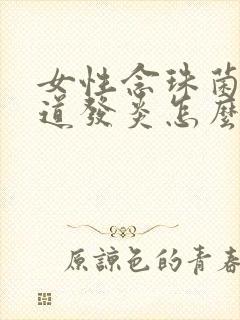 女性念珠菌
道發炎怎麼
原諒色的青春